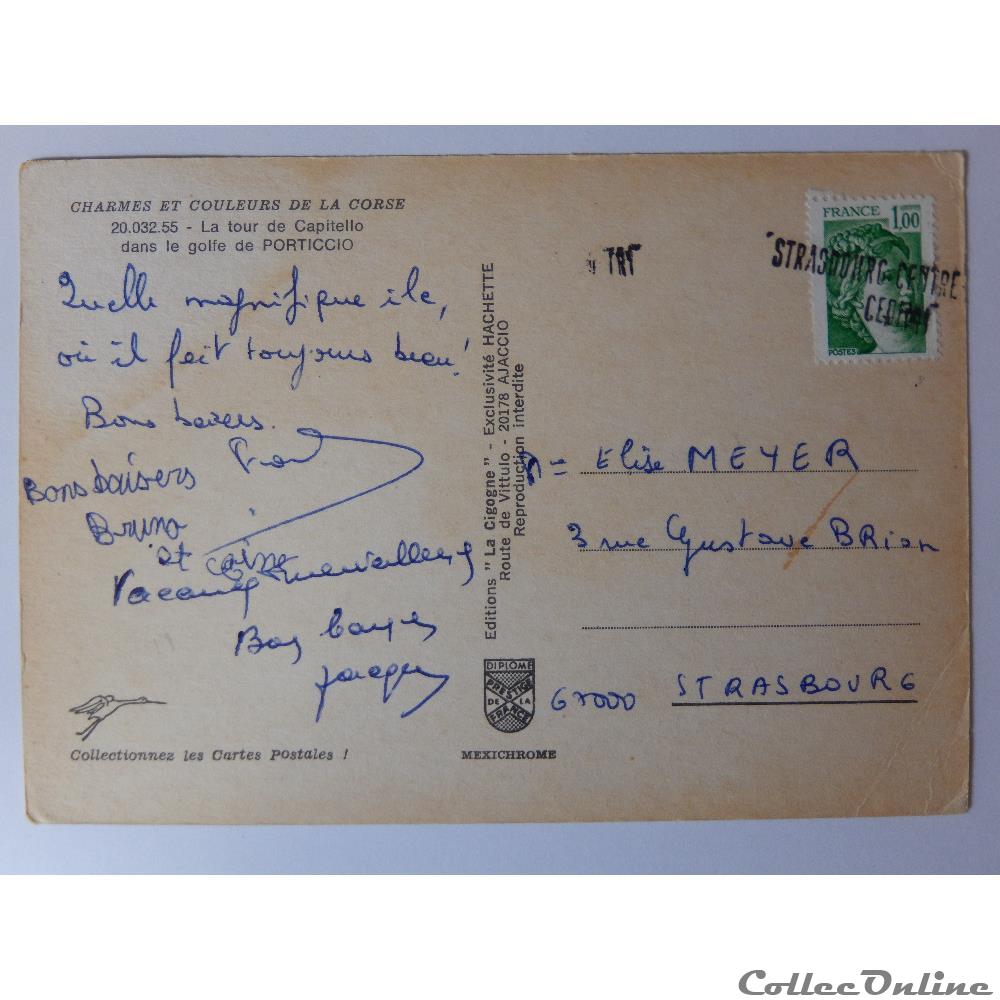 CHARMES ET COULEURS DE LA CORSE
20.032.55 - La tour de Capitello
dans le golfe de PORTICCIO
Quelle magnifique ile,
où il fait toujours beau!
Bons baisers.
Bons baisers
Bruno
et
Vacances merveilleuses
Bons baisers
Jacques
Collectionnez les Cartes Postales !
Editions "La Cigogne" - Exclusivité HACHETTE
Route de Vittulo - 20178 AJACCIO
Reproduction interdite
DIPLOME
PRESTIGE
DE LA
FRANCE
MEXICHROME
TRI
STRASBOURG-CENTRE
FRANCE 1,00
POSTES
Elise MEYER
3 rue Gustave BRion
67000 STRASBOURG
CollecOnline